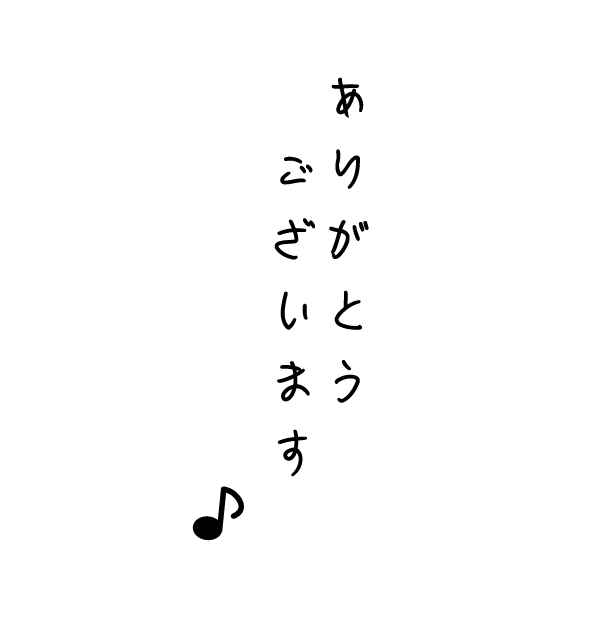 ありがとう
ございます
♪